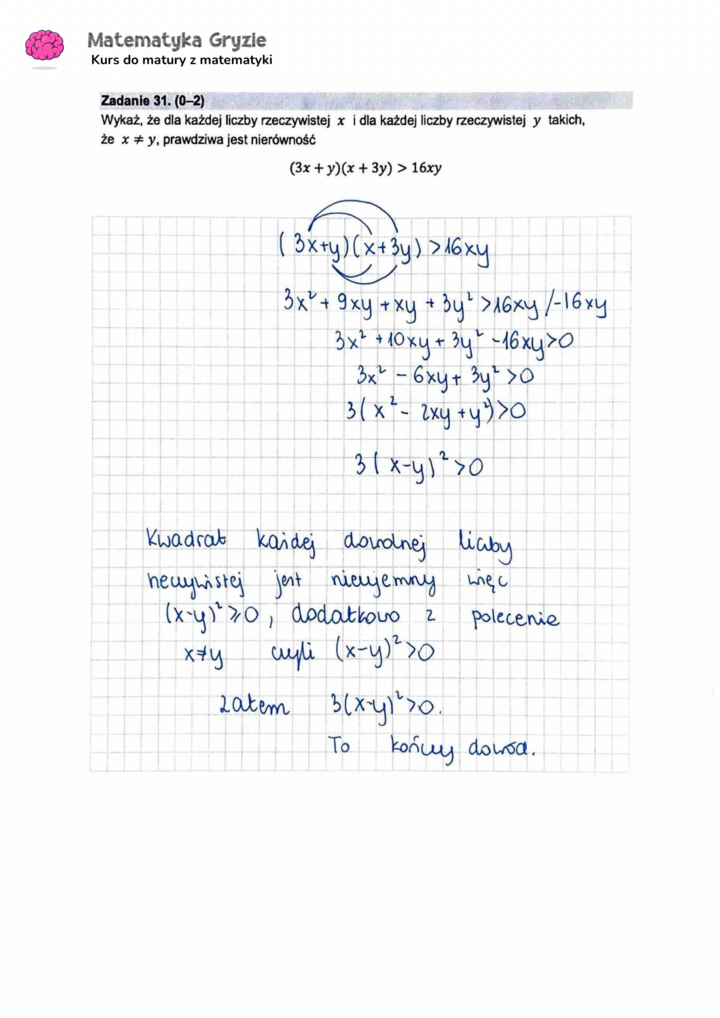 Matematyka Gryzie
Kurs do matury z matematyki
Zadanie 31. (0–2)
Wykaż, że dla każdej liczby rzeczywistej x i dla każdej liczby rzeczywistej y takich,
że x ≠ y, prawdziwa jest nierówność
(3x + y)(x + 3y) > 16xy
(3x+y)(x+3y) >16xy
3x² + 9xy + xy + 3y² >16xy /-16xy
3x² +10xy + 3y² -16xy>0
3x² - 6xy + 3y² >0
3(x² - 2xy + y²)>0
3(x-y)² >0
Kwadrat każdej dowolnej liczby
rzeczywistej jest nieujemny więc
(x-y)² ⩾0, dodatkowo z polecenie
x≠y czyli (x-y)² >0
zatem 3(x-y)² >0.
To kończy dowód.